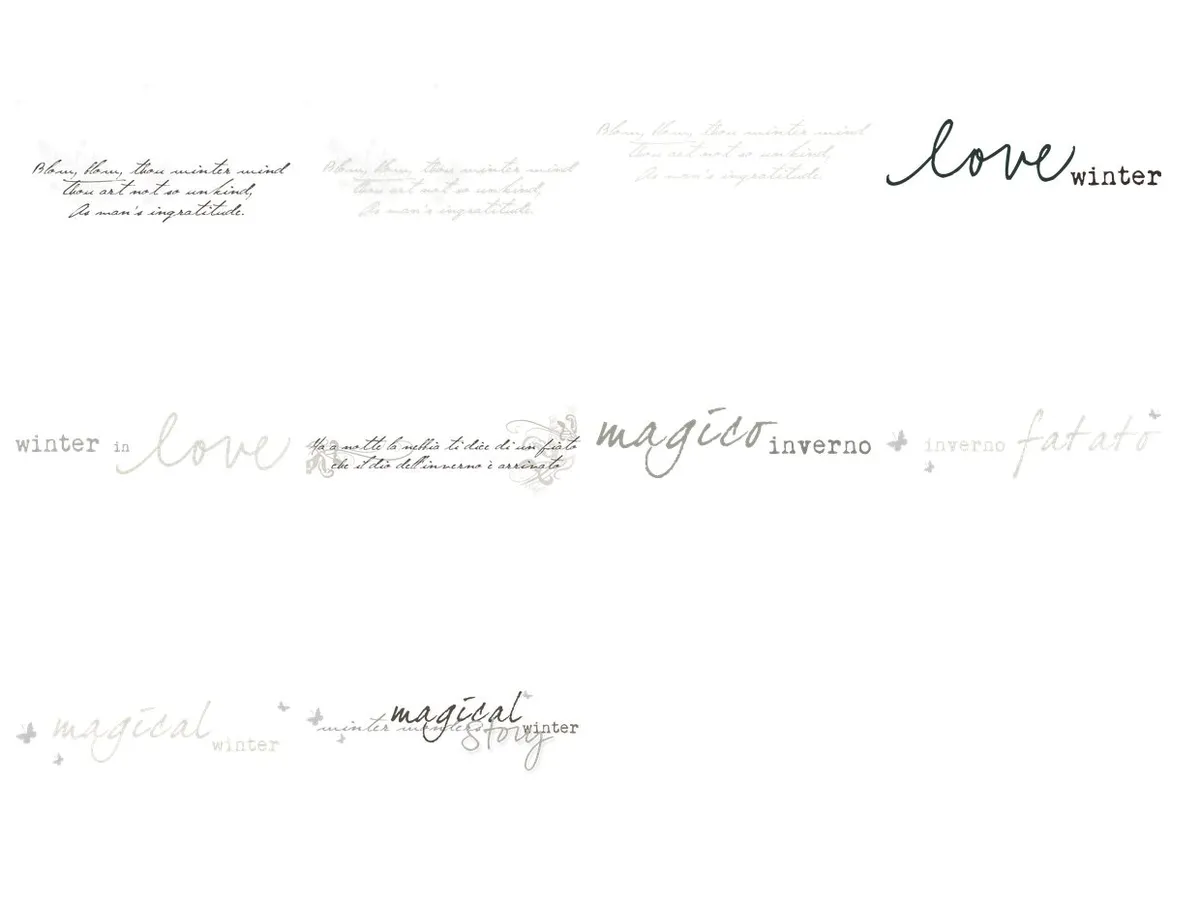 Blow, blow, thou winter wind
thou art not so unkind,
As man's ingratitude.
Blow, blow, thou winter wind
thou art not so unkind,
As man's ingratitude.
Blow, blow, thou winter wind
thou art not so unkind,
As man's ingratitude.
love winter
winter in love
Ma a notte la nebbia ti dice di un fiato
che il dio dell'inverno è arrivato
magico inverno
inverno fatato
magical winter
magical winter
winter wonders story